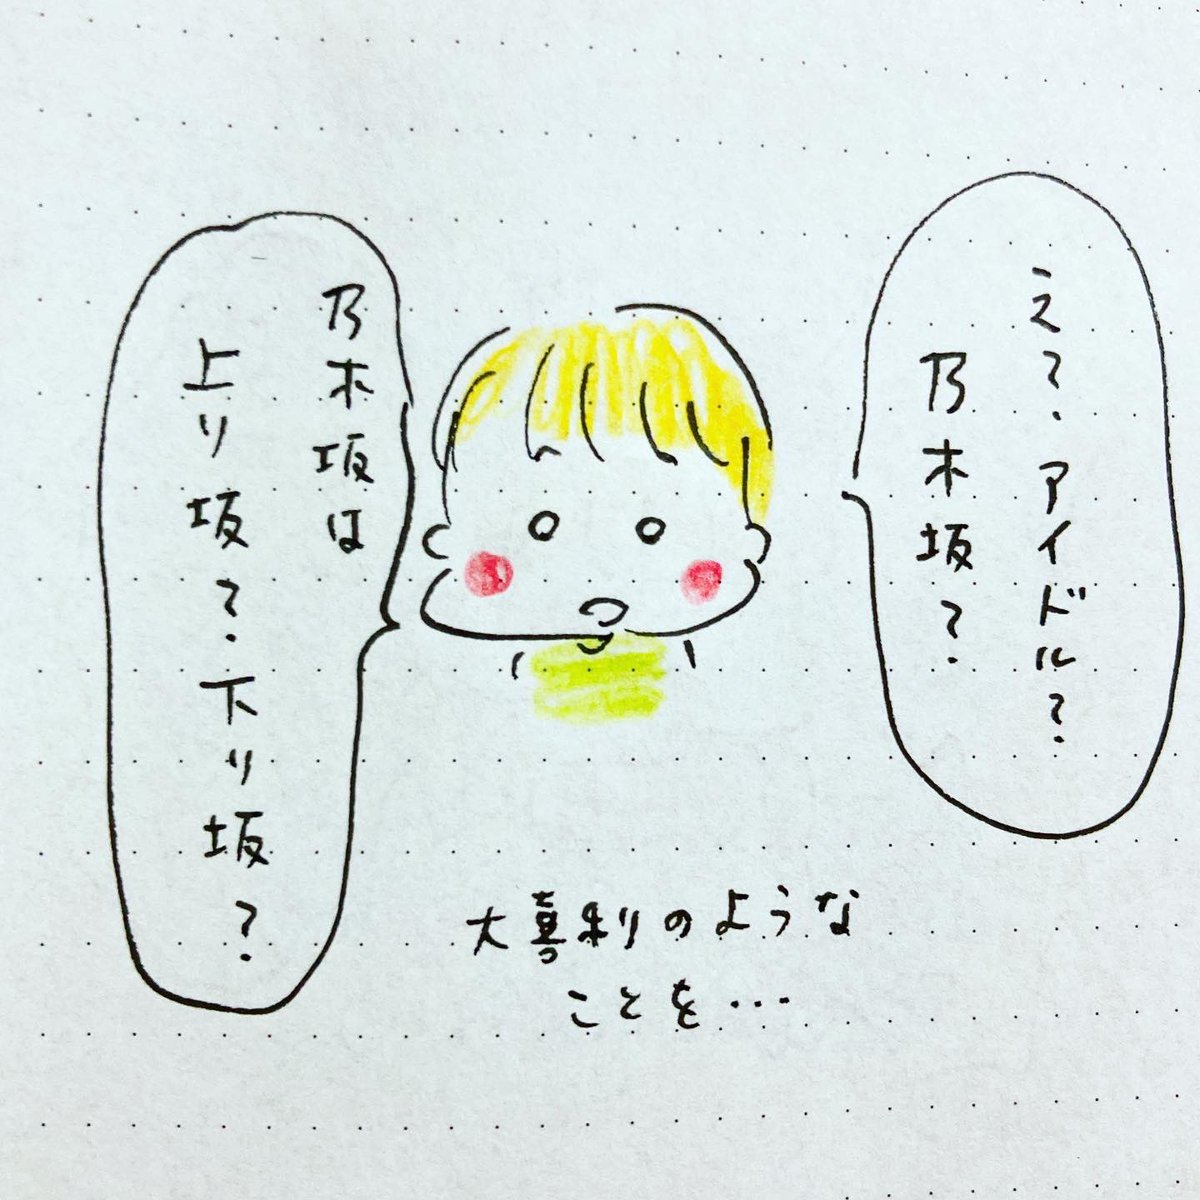 え?アイドル?
乃木坂?
乃木坂は
上り坂?下り坂?
大喜利のような
ことを…